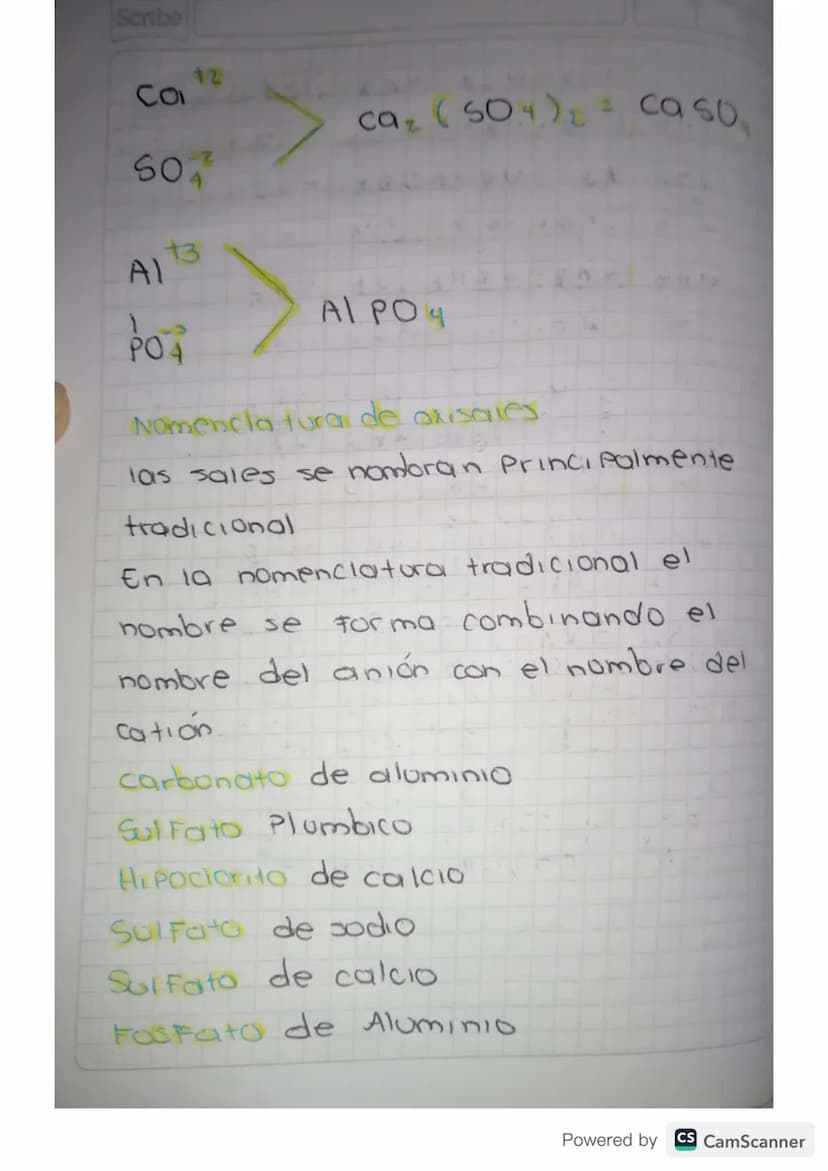 Scribe
Ca +2
ca2 (SO4)2 = caSO4
SO4 -2
Al +3
Al PO4
PO4 -3
Nomenclatura de oxisales
las sales se nombran principalmente
tradicional
En la nomenclatura tradicional el
nombre se forma combinando el
nombre del anión con el nombre del
catión.
carbonato de aluminio
Sulfato Plumbico
Hipoclorito de calcio
Sulfato de sodio
Sulfato de calcio
Fosfato de Aluminio
Powered by CS CamScanner